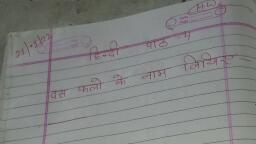 HW
हिन्दी पाठ-4
दस फलो के नाम लिखिए-